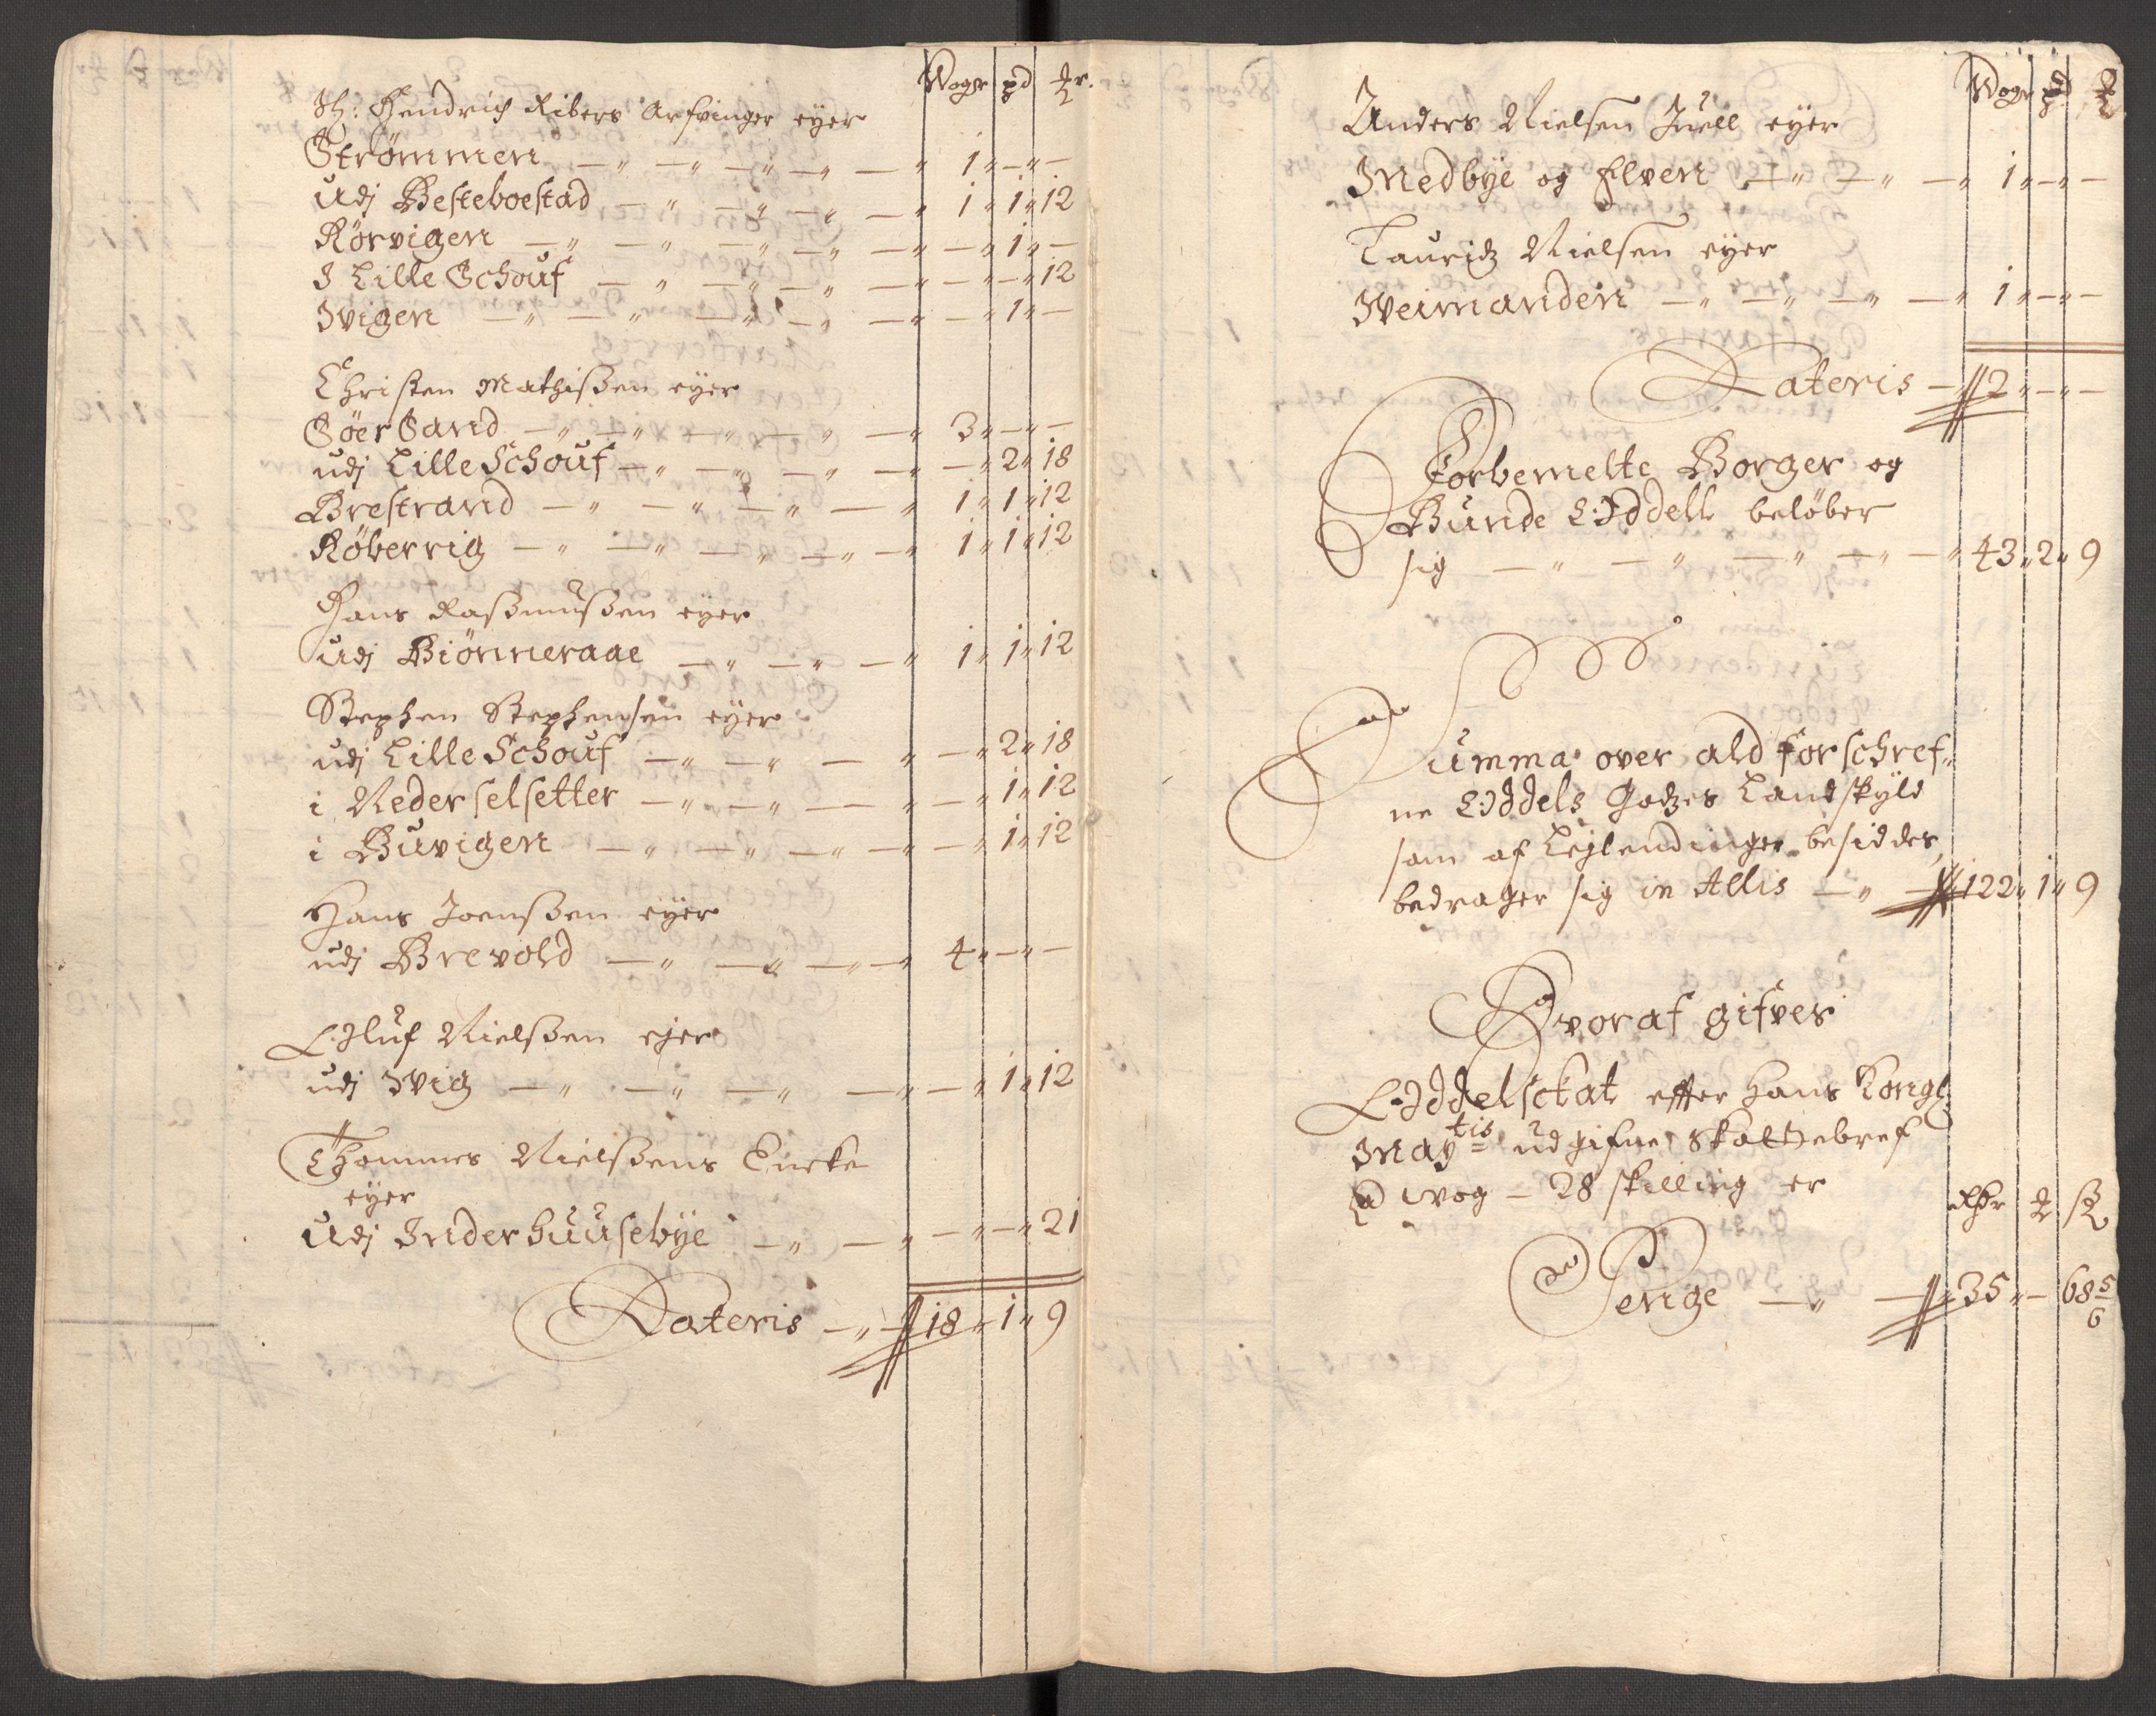 Woger pd ℔r.
Sl: Hendrich Ribers Arfvinger eyer
Strømmen — „ — „ — „ — „ — „ 1 „ — „ —
udj Besteboestad — „ — „ — „ — „ 1 „ 1 „ 12
Rørvigen — „ — „ — „ — „ — „ — „ 1 „ —
I Lille Schouf — „ — „ — „ — „ — „ — „ 12
Ivigen — „ — „ — „ — „ — „ — „ 1 „ —
Christen Mathißen eyer
Søer Sand — „ — „ — „ — „ — „ 3 „ — „ —
udj Lille Schouf — „ — „ — „ — „ — „ 2 „ 18
Brestrand — „ — „ — „ — „ 1 „ 1 „ 12
Røberrig — „ — „ — „ — „ — „ 1 „ 1 „ 12
Hans Raßmußen eyer
udj Biønneraae — „ — „ — „ 1 „ 1 „ 12
Stephen Stephensen eyer
udj Lille Schouf — „ — „ — „ — „ 2 „ 18
i Neder selsetter — „ — „ — „ — „ 1 „ 12
i Buvigen — „ — „ — „ — „ — „ 1 „ 12
Hans Joenßen eyer
udj Brevold — „ — „ — „ — „ 4 „ — „ —
Oluf Nielßen ejer
udj Ivig — „ — „ — „ — „ — „ 1 „ 12
Thommes Nielßens Encke
eyer
Udj Inderhuusebye — „ — „ — „ — „ 21
Lateris — „ — 18 „ 1 „ 9
Woger pd ℔
Anders Nielsen Juell eyer
Medbye og Elven — „ — „ — „ 1 „ — „ —
Lauridz Nielsen eyer
Weimanden — „ — „ — „ — „ 1 „ — „ —
Lateris — 2 „ — „ —
Forbemelte Borger og
Bunde Oddell beløber
sig — „ — „ — „ — „ — „ 43 „ 2 „ 9
Summa over ald forschref„
ne Oddels Godzes Landskyld
som af Lejlendinger besiddes,
bedrager sig in Allis — „ — 122 „ 1 „ 9
Hvoraf gifves
Oddelsckat effter Hans Kongl:
Maytis udgifne Skattebref
a wog — 28 skilling er
Rdr ℔ ß
Penge — „ — 35 „ — 68 5/6